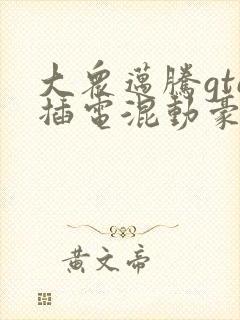 大衆邁騰gte
插電混動豪
黄文帝